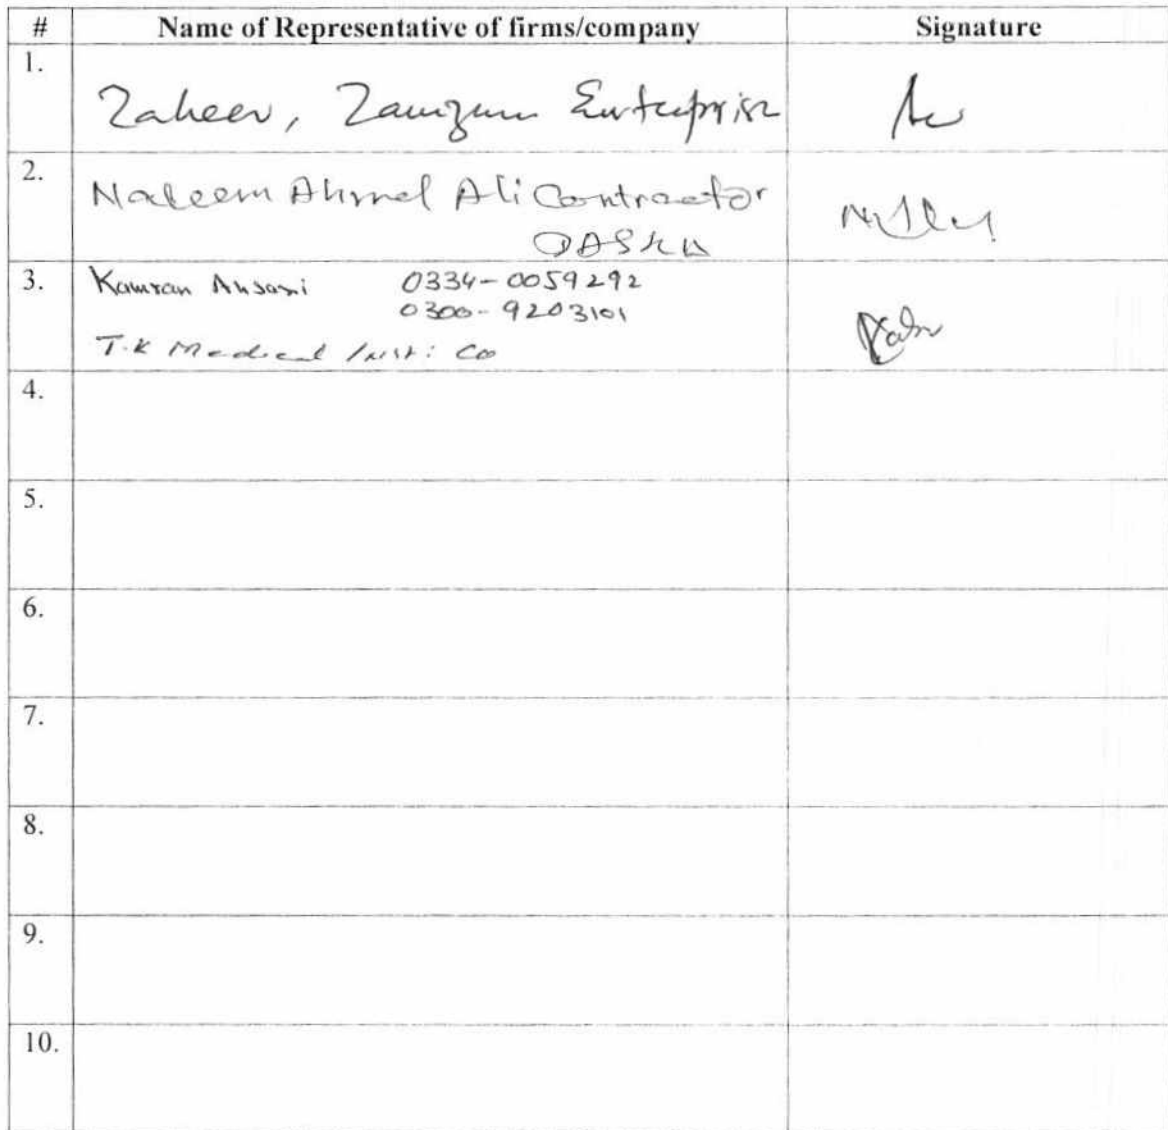 # Name of Representative of firms/company Signature
1.
Zaheer, Zamzum Enterprise
2.
Nadeem Ahmed Ali Contractor
DASKA
3. Kamran Ansari 0334-0059292
0300-9203101
T.K Medical Inst: Co
4.
5.
6.
7.
8.
9.
10.